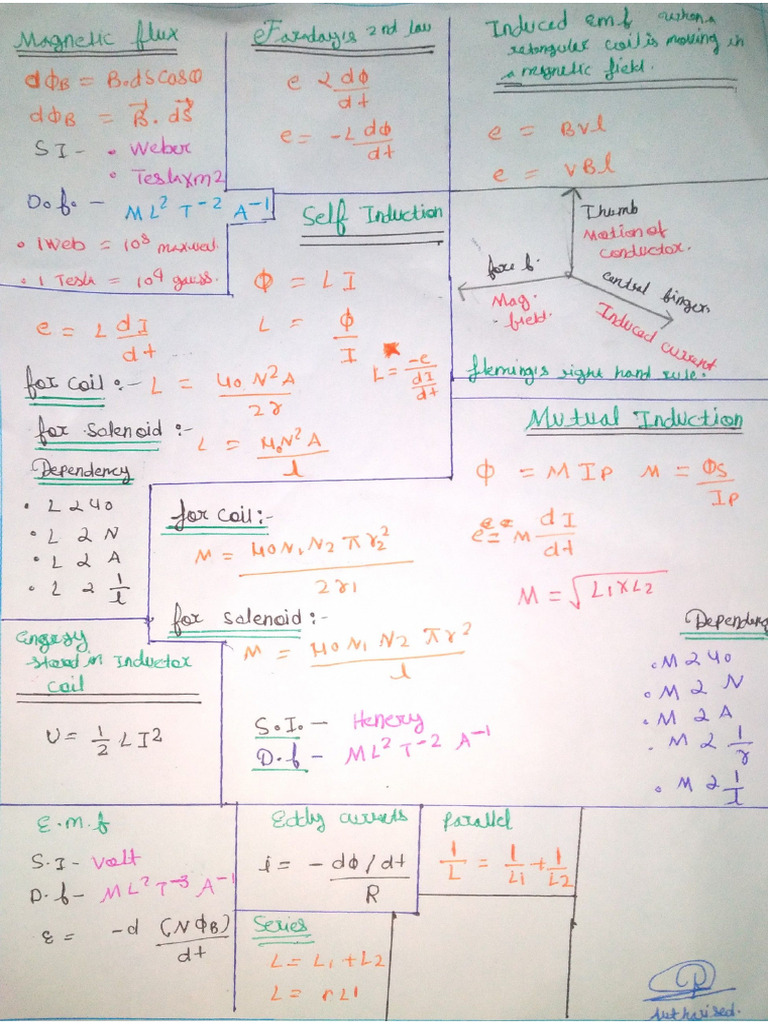 Magnetic flux
dϕB = B.dscosΘ
dϕB = B⃗. ds⃗
SI - • Weber
• Tesla×m2
D.f. - ML² T⁻² A⁻¹
• 1Web = 10⁸ maxwel.
• 1 Tesla = 10⁴ guass.
Faraday's 2nd law
e 2 dϕ/dt
e = -L dϕ/dt
Induced emf when a
retangular coil is moving in
a magnetic field.
e = Bvl
e = vBl
Thumb
Motion of
conductor.
fore f.
Mag.
field.
central finger
Induced current
fleming's right hand rule.
Self Induction
ϕ = LI
L = ϕ/I
e = L dI/dt
L = -e/(dI/dt)
for coil :- L = μ0 N²A/2r
for solenoid :- L = μ0N² A/l
Dependency
• L 2 μ0
• L 2 N
• L 2 A
• L 2 1/l
Mutual Induction
ϕ = M Ip M = ϕs/Ip
e = M dI/dt
M = √L1×L2
for coil:-
M = μ0 N1 N2 π r2²/2r1
for solenoid :-
M = μ0 N1 N2 πr²/l
S.I. - Henery
D.f - ML² T⁻² A⁻¹
Dependenc
• M 2 μ0
• M 2 N
• M 2 A
• M 2 1/r
• M 2 1/I
Energy
stored in Inductor
coil
U = 1/2 LI²
E.m.f
S.I - Volt
D.f - ML² T⁻³ A⁻¹
ε = -d (NϕB)/dt
Eddy currents
i = -dϕ/dt/R
Series
L = L1 + L2
L = nL1
Parallel
1/L = 1/L1 + 1/L2
Authorised.